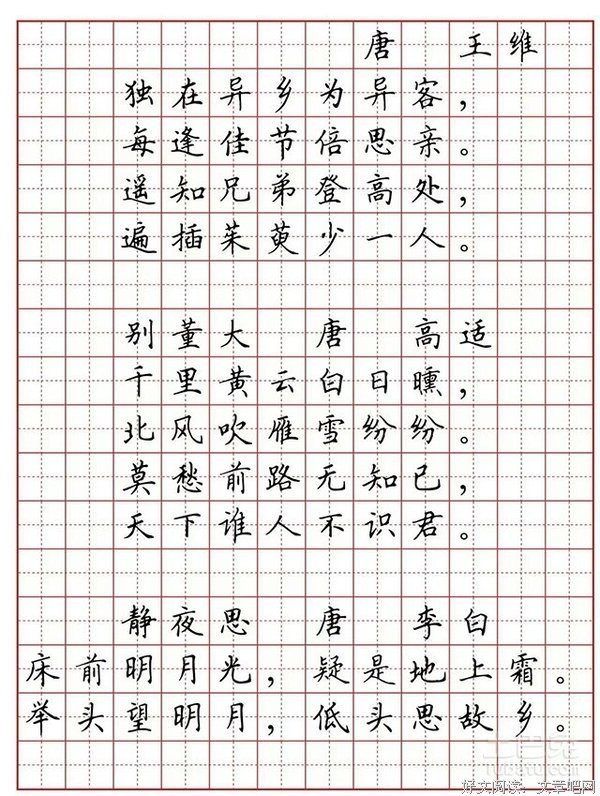 唐 王维
独在异乡为异客，
每逢佳节倍思亲。
遥知兄弟登高处，
遍插茱萸少一人。
别董大 唐 高适
千里黄云白日曛，
北风吹雁雪纷纷。
莫愁前路无知已，
天下谁人不识君。
静夜思 唐 李白
床前明月光，疑是地上霜。
举头望明月，低头思故乡。
好文阅读：文章吧网